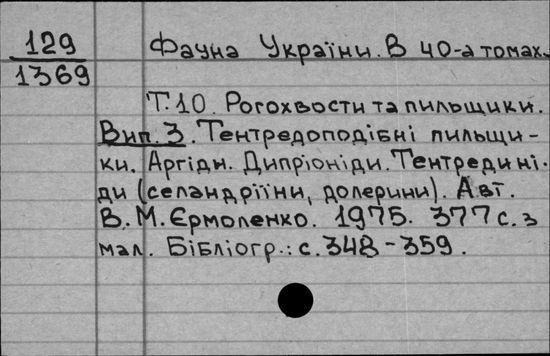 129
1369
Фауна України. В 40-а томах.
Т.10. Рогохвости та пильщики.
Вип. 3. Тентредоподібні пильщи-
ки. Аргіди. Дипріоніди. Тентредині-
ди (селандріїни, долерини). Авт.
В. М. Єрмоленко. 1975. 377 с. з
мал. Бібліогр.: с. 348-359.